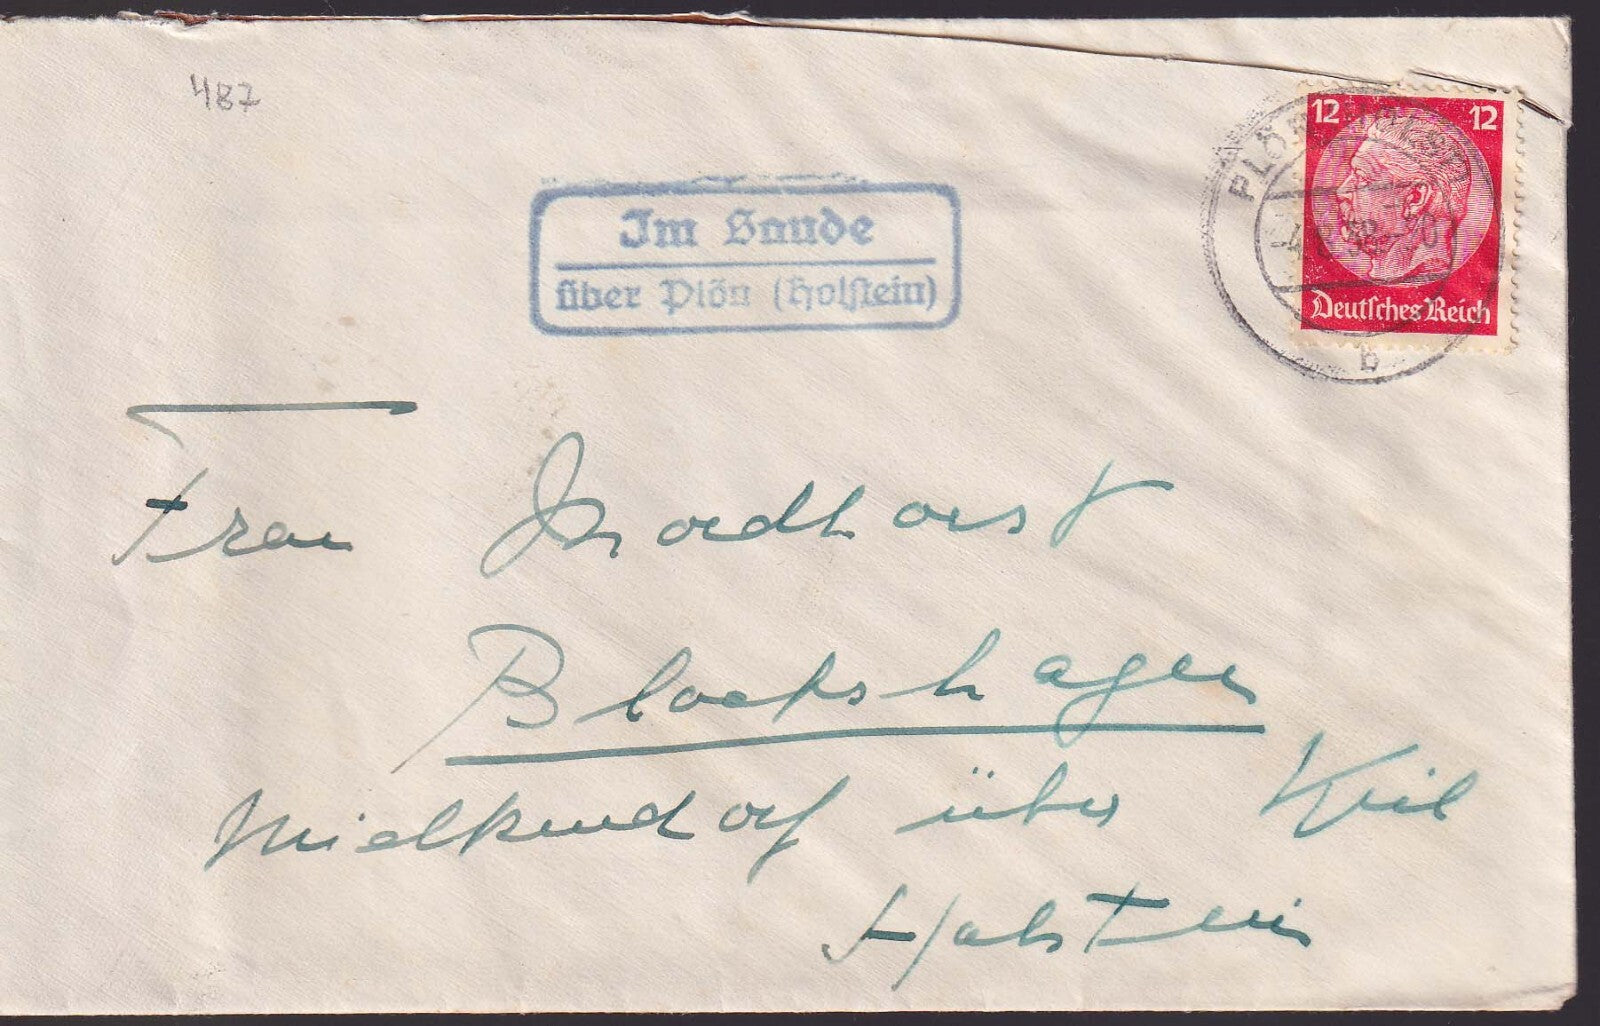 487
12 12
Deutsches Reich
PLÖN (HOLSTEIN)
b
Im Sande
über Plön (Holstein)
Frau Nordhorst
Blockshagen
Mielkendorf über Kiel
Holstein